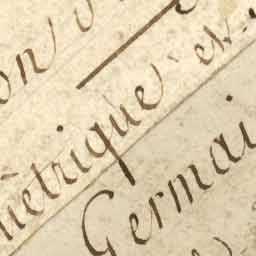 on
métrique et
Germai